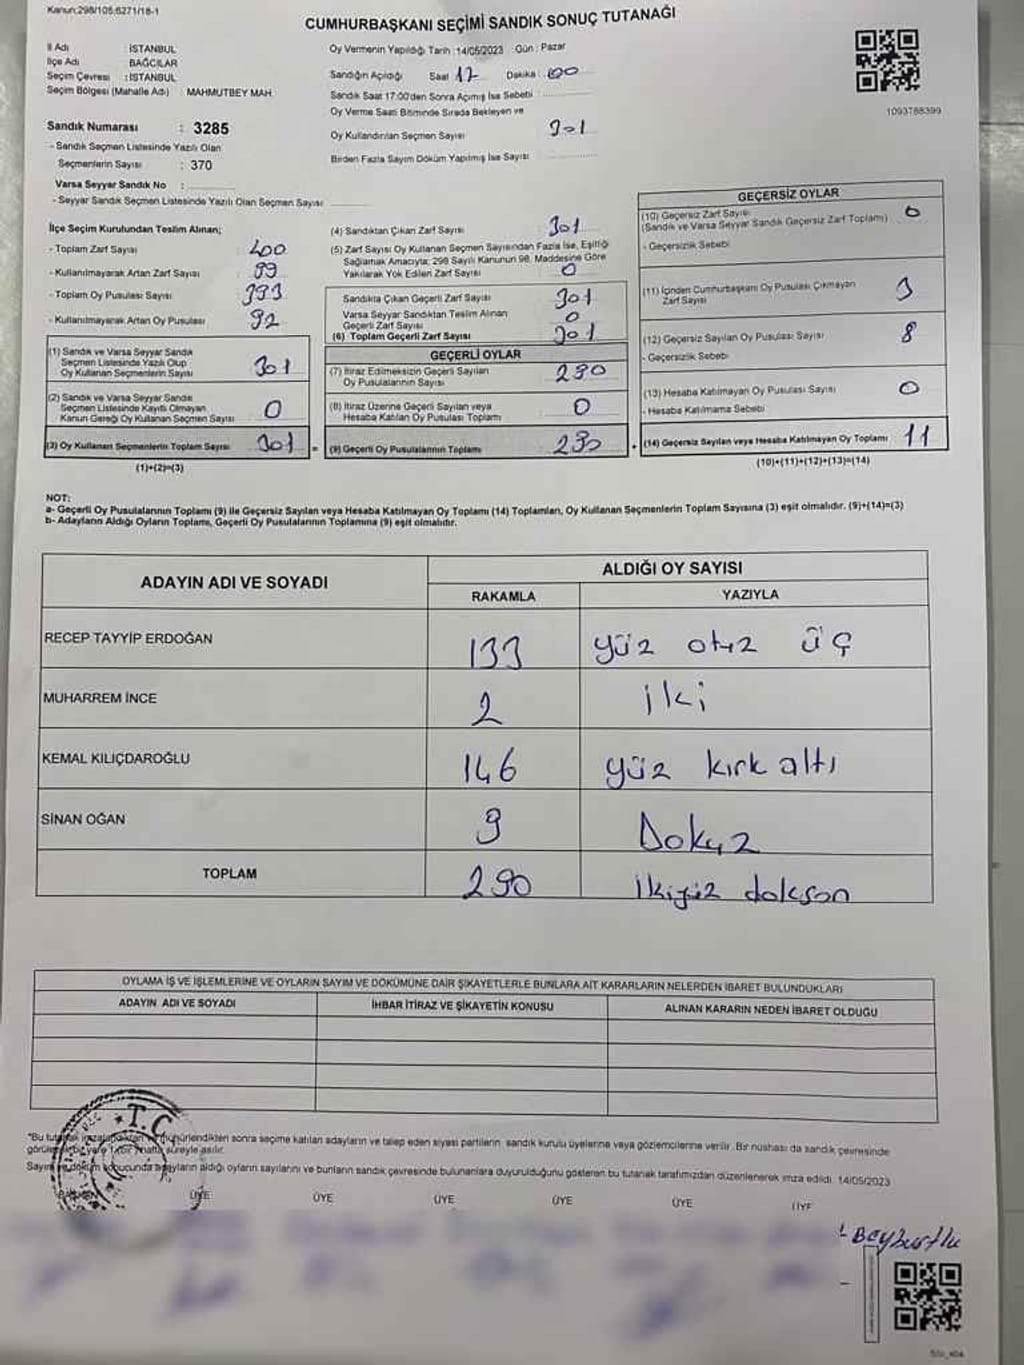 Kanun:298/105;6271/18-1
CUMHURBAŞKANI SEÇİMİ SANDIK SONUÇ TUTANAĞI
İl Adı : İSTANBUL
İlçe Adı : BAĞCILAR
Seçim Çevresi : İSTANBUL
Seçim Bölgesi (Mahalle Adı) : MAHMUTBEY MAH.
Sandık Numarası : 3285
- Sandık Seçmen Listesinde Yazılı Olan
Seçmenlerin Sayısı : 370
Varsa Seyyar Sandık No :
- Seyyar Sandık Seçmen Listesinde Yazılı Olan Seçmen Sayısı
Oy Vermenin Yapıldığı Tarih :14/05/2023 Gün : Pazar
Sandığın Açıldığı Saat 17 Dakika : 00
Sandık Saat 17:00'den Sonra Açımış İse Sebebi :
Oy Verme Saati Bitiminde Sırada Bekleyen ve
Oy Kullandırılan Seçmen Sayısı 301
Birden Fazla Sayım Döküm Yapılmış İse Sayısı
1093788399
İlçe Seçim Kurulundan Teslim Alınan;
- Toplam Zarf Sayısı : 400
- Kullanılmayarak Artan Zarf Sayısı : 99
- Toplam Oy Pusulası Sayısı : 393
- Kullanılmayarak Artan Oy Pusulası : 92
(1) Sandık ve Varsa Seyyar Sandık
Seçmen Listesinde Yazılı Olup
Oy Kullanan Seçmenlerin Sayısı 301
(2) Sandık ve Varsa Seyyar Sandık
Seçmen Listesinde Kayıtlı Olmayan
Kanun Gereği Oy Kullanan Seçmen Sayısı 0
(3) Oy Kullanan Seçmenlerin Toplam Sayısı 301 =
(1)+(2)=(3)
(4) Sandıktan Çıkan Zarf Sayısı : 301
(5) Zarf Sayısı Oy Kullanan Seçmen Sayısından Fazla İse, Eşitliği
Sağlamak Amacıyla; 298 Sayılı Kanunun 98. Maddesine Göre
Yakılarak Yok Edilen Zarf Sayısı 0
Sandıkta Çıkan Geçerli Zarf Sayısı 301
Varsa Seyyar Sandıktan Teslim Alınan
Geçerli Zarf Sayısı 0
(6) Toplam Geçerli Zarf Sayısı 301
GEÇERLİ OYLAR
(7) İtiraz Edilmeksizin Geçerli Sayılan
Oy Pusulalarının Sayısı 290
(8) İtiraz Üzerine Geçerli Sayılan veya
Hesaba Katılan Oy Pusulası Toplamı 0
(9) Geçerli Oy Pusulalarının Toplamı 290 +
GEÇERSİZ OYLAR
(10) Geçersiz Zarf Sayısı
(Sandık ve Varsa Seyyar Sandık Geçersiz Zarf Toplamı) 0
- Geçersizlik Sebebi
(11) İçinden Cumhurbaşkanı Oy Pusulası Çıkmayan
Zarf Sayısı 3
(12) Geçersiz Sayılan Oy Pusulası Sayısı 8
- Geçersizlik Sebebi
(13) Hesaba Katılmayan Oy Pusulası Sayısı 0
- Hesaba Katılmama Sebebi
(14) Geçersiz Sayılan veya Hesaba Katılmayan Oy Toplamı 11
(10)+(11)+(12)+(13)=(14)
NOT:
a- Geçerli Oy Pusulalarının Toplamı (9) ile Geçersiz Sayılan veya Hesaba Katılmayan Oy Toplamı (14) Toplamları, Oy Kullanan Seçmenlerin Toplam Sayısına (3) eşit olmalıdır. (9)+(14)=(3)
b- Adayların Aldığı Oyların Toplamı, Geçerli Oy Pusulalarının Toplamına (9) eşit olmalıdır.
ADAYIN ADI VE SOYADI
ALDIĞI OY SAYISI
RAKAMLA YAZIYLA
RECEP TAYYİP ERDOĞAN 133 yüz otuz üç
MUHARREM İNCE 2 iki
KEMAL KILIÇDAROĞLU 146 yüz kırk altı
SİNAN OĞAN 9 Dokuz
TOPLAM 290 ikiyüz doksan
OYLAMA İŞ VE İŞLEMLERİNE VE OYLARIN SAYIM VE DÖKÜMÜNE DAİR ŞİKAYETLERLE BUNLARA AİT KARARLARIN NELERDEN İBARET BULUNDUKLARI
ADAYIN ADI VE SOYADI İHBAR İTİRAZ VE ŞİKAYETİN KONUSU ALINAN KARARIN NEDEN İBARET OLDUĞU
T.C
*Bu tutanak imzalandıktan ve mühürlendikten sonra seçime katılan adayların ve talep eden siyasi partilerin sandık kurulu üyelerine veya gözlemcilerine verilir. Bir nüshası da sandık çevresinde
görülebilir yere 1 bir hafta süreyle asılır.
Sayım ve döküm sonucunda adayların aldığı oyların sayılarını ve bunların sandık çevresinde bulunanlara duyurulduğunu gösteren bu tutanak tarafımızdan düzenlenerek imza edildi. 14/05/2023
BAŞKAN ÜYE ÜYE ÜYE ÜYE ÜYE ÜYE
Beyburtlu